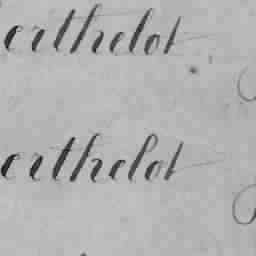 erthelot
erthelot